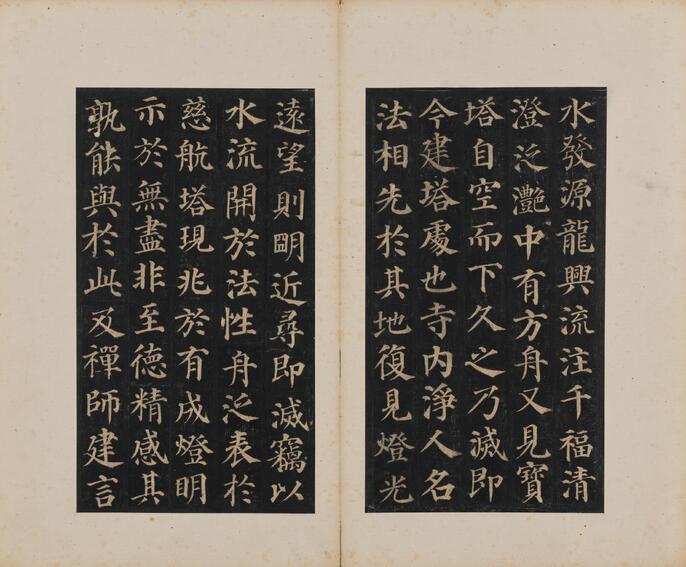 水發源龍興流注千福清
澄泛灩中有方舟又見寶
塔自空而下久之乃滅即
今建塔處也寺内淨人名
法相先於其地復見燈光
遠望則明近尋即滅竊以
水流開於法性舟泛表於
慈航塔現兆於有成燈明
示於無盡非至德精感其
孰能與於此及禪師建言